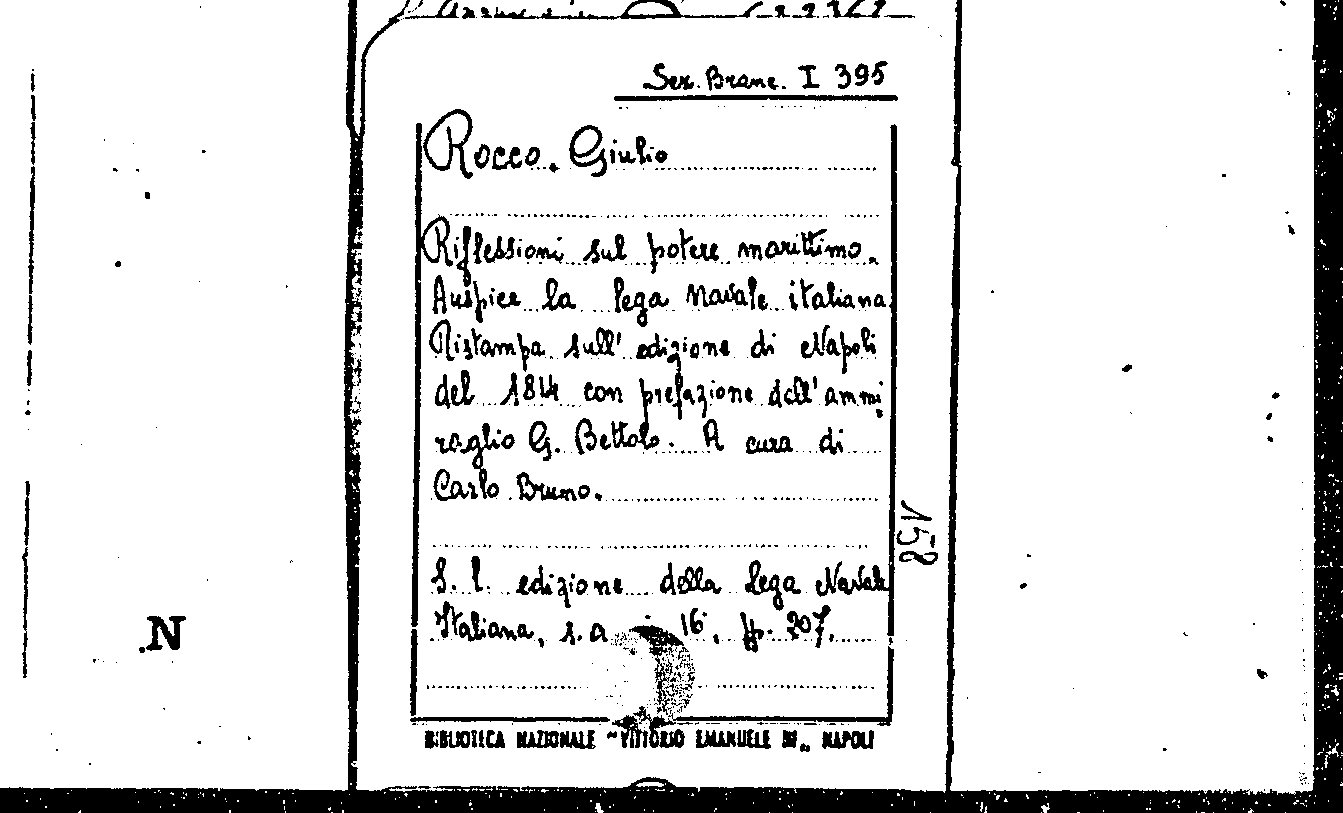 Sez. Branc. I 395
Rocco. Giulio
Riflessioni sul potere marittimo.
Auspice la lega Navale italiana.
Ristampa sull' edizione di Napoli
del 1814 con prefazione dell'ammi
raglio G. Bettolo. A cura di
Carlo Bruno.
158
S. l. edizione della Lega Navale
Italiana, s.a 16. pp. 207.
.N
BIBLIOTECA NAZIONALE "VITTORIO EMANUELE III„ NAPOLI